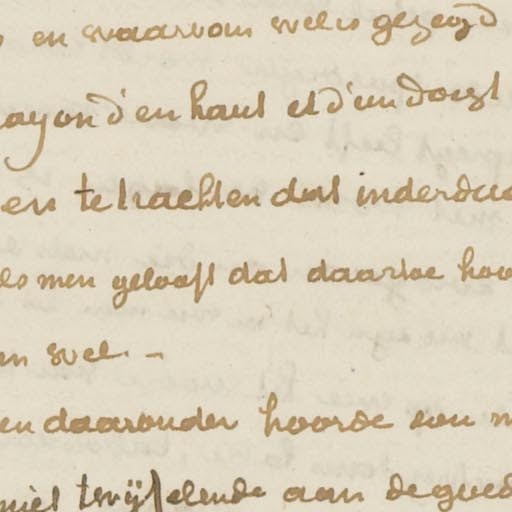 en waarvan wel is gezegd
rayon d'en haut et d'un doigt
en te trachten dat inderdaa
als men gelooft dat daartoe hoo
an wel. –
en daaronder hoorde een m
niet twijfelende aan de goed